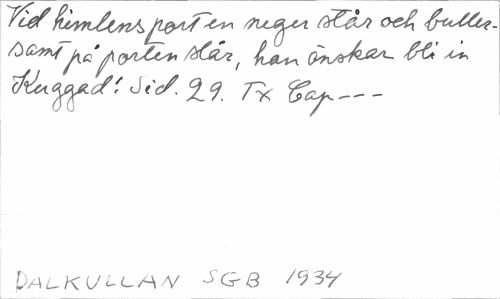 Vid himlens port en neger står och buller-
samt på porten slår, han önskar bli in
Kuggad! Sid. 29. Tx Cap---
DALKULLAN SGB 1934